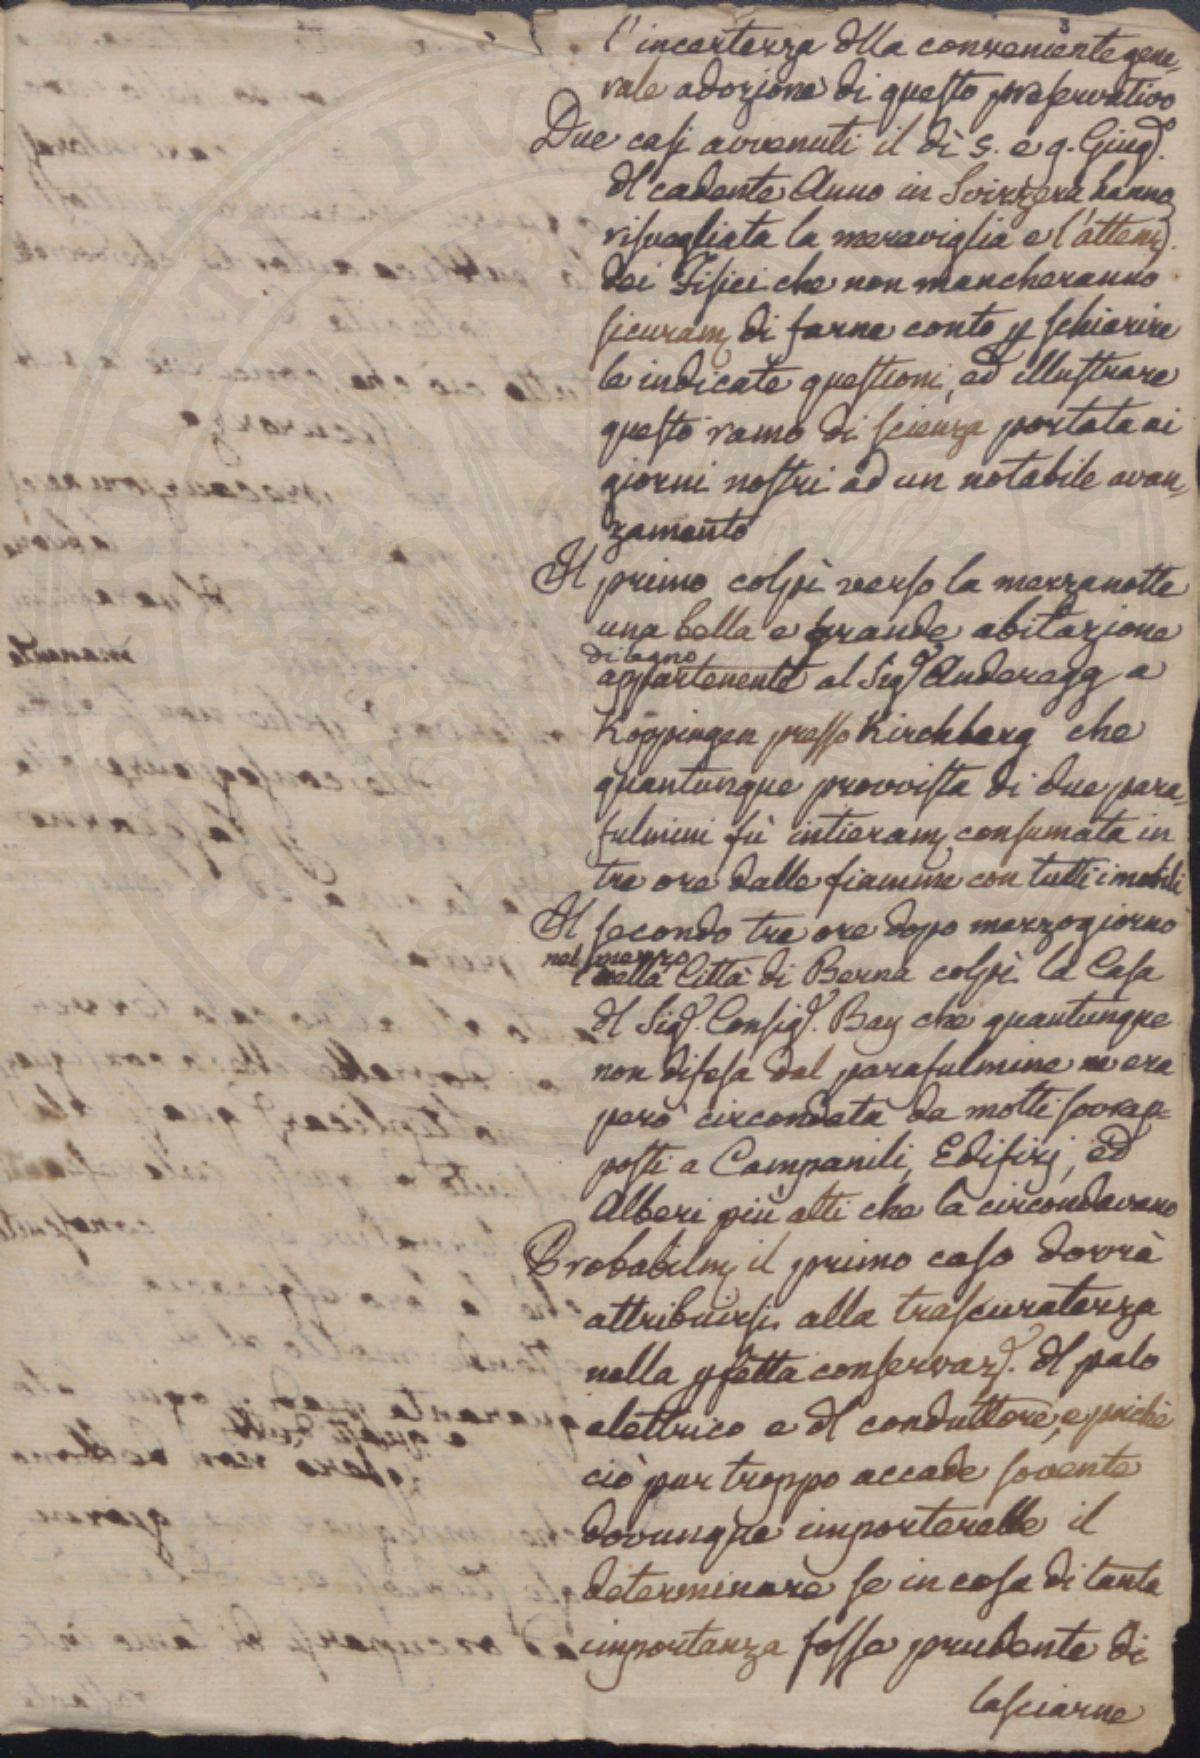 3
l'incertezza dlla conveniente gene,
rale adozione di questo preservativo
Due casi avvenuti il dì 5. e 9. Giug.
dl cadente Anno in Svizzera hanno
risvegliata la meraviglia e l'attenz.
dei Fisici che non mancheranno
sicuram di farne conto p schiarire
le indicate questioni, ed illustrare
questo ramo di scienza portata ai
giorni nostri ad un notabile avan,
zamento
Il primo colpì verso la mezzanotte
una bella e grande abitazione
di legno
appartenente al Sig. Anderegg a
Koppingen presso Kirchberg che
quantunque provvista di due para,
fulmini fù intieram consumata in
tre ore dalle fiamme con tutti i mobili
Il secondo tre ore dopo mezzogiorno
nel mezzo
della Città di Berna colpì la Casa
dl Sig. Consig. Bay che quantunque
non difesa dal parafulmine n'era
però circondata da molti sovrap=
posti a Campanili, Edifizj, ed
Alberi più alti che la circondavano
Probabilm il primo caso dovrà
attribuirsi alla trascuratezza
nella pfetta conservaz. dl palo
elettrico e dl conduttore, e poichè
ciò pur troppo accade sovente
dovunque importerebbe il
determinare se in cosa di tanta
importanza fosse prudente di
lasciarne